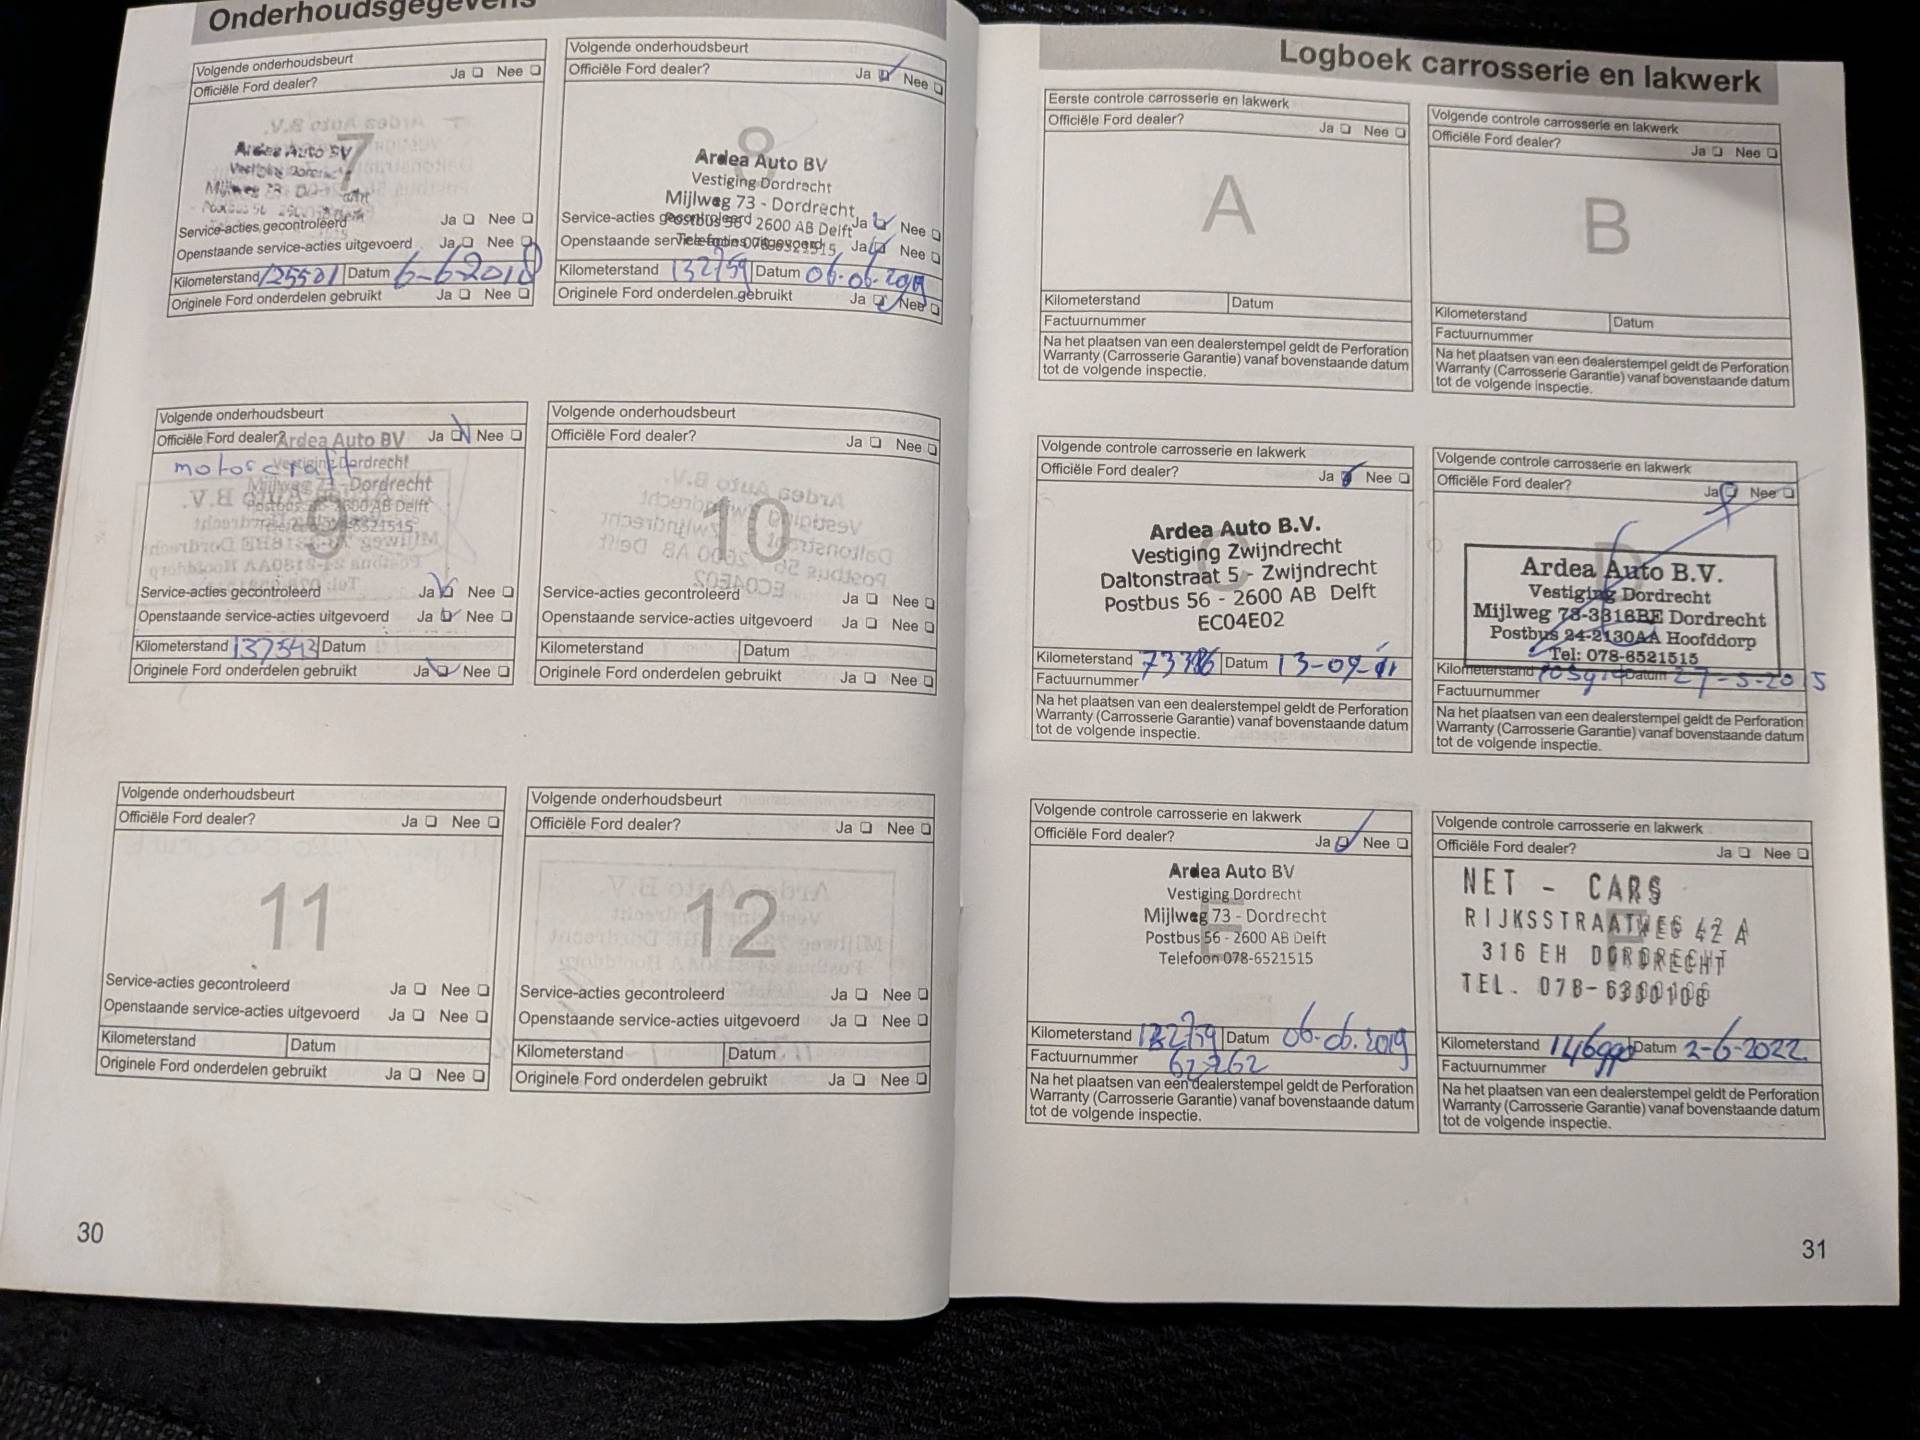 Onderhoudsgegevens
Volgende onderhoudsbeurt
Officiële Ford dealer? Ja Nee
7
Ardea Auto BV
Mijlweg 73
Service-acties gecontroleerd Ja Nee
Openstaande service-acties uitgevoerd Ja Nee
Kilometerstand 125501 Datum 6-6-2018
Originele Ford onderdelen gebruikt Ja Nee
Volgende onderhoudsbeurt
Officiële Ford dealer? Ja Nee
8
Ardea Auto BV
Vestiging Dordrecht
Mijlweg 73 - Dordrecht
Postbus 56 - 2600 AB Delft
Telefoon 078-6521515
Service-acties gecontroleerd Ja Nee
Openstaande service-acties uitgevoerd Ja Nee
Kilometerstand 132759 Datum 06-06-2019
Originele Ford onderdelen gebruikt Ja Nee
Volgende onderhoudsbeurt
Officiële Ford dealer? Ja Nee
motorcraft
Ardea Auto BV
Vestiging Dordrecht
Mijlweg 73 - Dordrecht
Postbus 56 - 2600 AB Delft
9
Service-acties gecontroleerd Ja Nee
Openstaande service-acties uitgevoerd Ja Nee
Kilometerstand 137543 Datum
Originele Ford onderdelen gebruikt Ja Nee
Volgende onderhoudsbeurt
Officiële Ford dealer? Ja Nee
10
Service-acties gecontroleerd Ja Nee
Openstaande service-acties uitgevoerd Ja Nee
Kilometerstand Datum
Originele Ford onderdelen gebruikt Ja Nee
Volgende onderhoudsbeurt
Officiële Ford dealer? Ja Nee
11
Service-acties gecontroleerd Ja Nee
Openstaande service-acties uitgevoerd Ja Nee
Kilometerstand Datum
Originele Ford onderdelen gebruikt Ja Nee
Volgende onderhoudsbeurt
Officiële Ford dealer? Ja Nee
12
Service-acties gecontroleerd Ja Nee
Openstaande service-acties uitgevoerd Ja Nee
Kilometerstand Datum
Originele Ford onderdelen gebruikt Ja Nee
30
Logboek carrosserie en lakwerk
Eerste controle carrosserie en lakwerk
Officiële Ford dealer? Ja Nee
A
Kilometerstand Datum
Factuurnummer
Na het plaatsen van een dealerstempel geldt de Perforation
Warranty (Carrosserie Garantie) vanaf bovenstaande datum
tot de volgende inspectie.
Volgende controle carrosserie en lakwerk
Officiële Ford dealer? Ja Nee
B
Kilometerstand Datum
Factuurnummer
Na het plaatsen van een dealerstempel geldt de Perforation
Warranty (Carrosserie Garantie) vanaf bovenstaande datum
tot de volgende inspectie.
Volgende controle carrosserie en lakwerk
Officiële Ford dealer? Ja Nee
C
Ardea Auto B.V.
Vestiging Zwijndrecht
Daltonstraat 5 - Zwijndrecht
Postbus 56 - 2600 AB Delft
EC04E02
Kilometerstand Datum 13-09-11
Factuurnummer
Na het plaatsen van een dealerstempel geldt de Perforation
Warranty (Carrosserie Garantie) vanaf bovenstaande datum
tot de volgende inspectie.
Volgende controle carrosserie en lakwerk
Officiële Ford dealer? Ja Nee
D
Ardea Auto B.V.
Vestiging Dordrecht
Mijlweg 73-3316BE Dordrecht
Postbus 24-2130AA Hoofddorp
Tel: 078-6521515
Kilometerstand Datum 27-5-2015
Factuurnummer
Na het plaatsen van een dealerstempel geldt de Perforation
Warranty (Carrosserie Garantie) vanaf bovenstaande datum
tot de volgende inspectie.
Volgende controle carrosserie en lakwerk
Officiële Ford dealer? Ja Nee
E
Ardea Auto BV
Vestiging Dordrecht
Mijlweg 73 - Dordrecht
Postbus 56 - 2600 AB Delft
Telefoon 078-6521515
Kilometerstand 132759 Datum 06-06-2019
Factuurnummer 62262
Na het plaatsen van een dealerstempel geldt de Perforation
Warranty (Carrosserie Garantie) vanaf bovenstaande datum
tot de volgende inspectie.
Volgende controle carrosserie en lakwerk
Officiële Ford dealer? Ja Nee
F
NET - CARS
RIJKSSTRAATWEG 42 A
316 EH DORDRECHT
TEL. 078-
Kilometerstand Datum 2-6-2022.
Factuurnummer
Na het plaatsen van een dealerstempel geldt de Perforation
Warranty (Carrosserie Garantie) vanaf bovenstaande datum
tot de volgende inspectie.
31